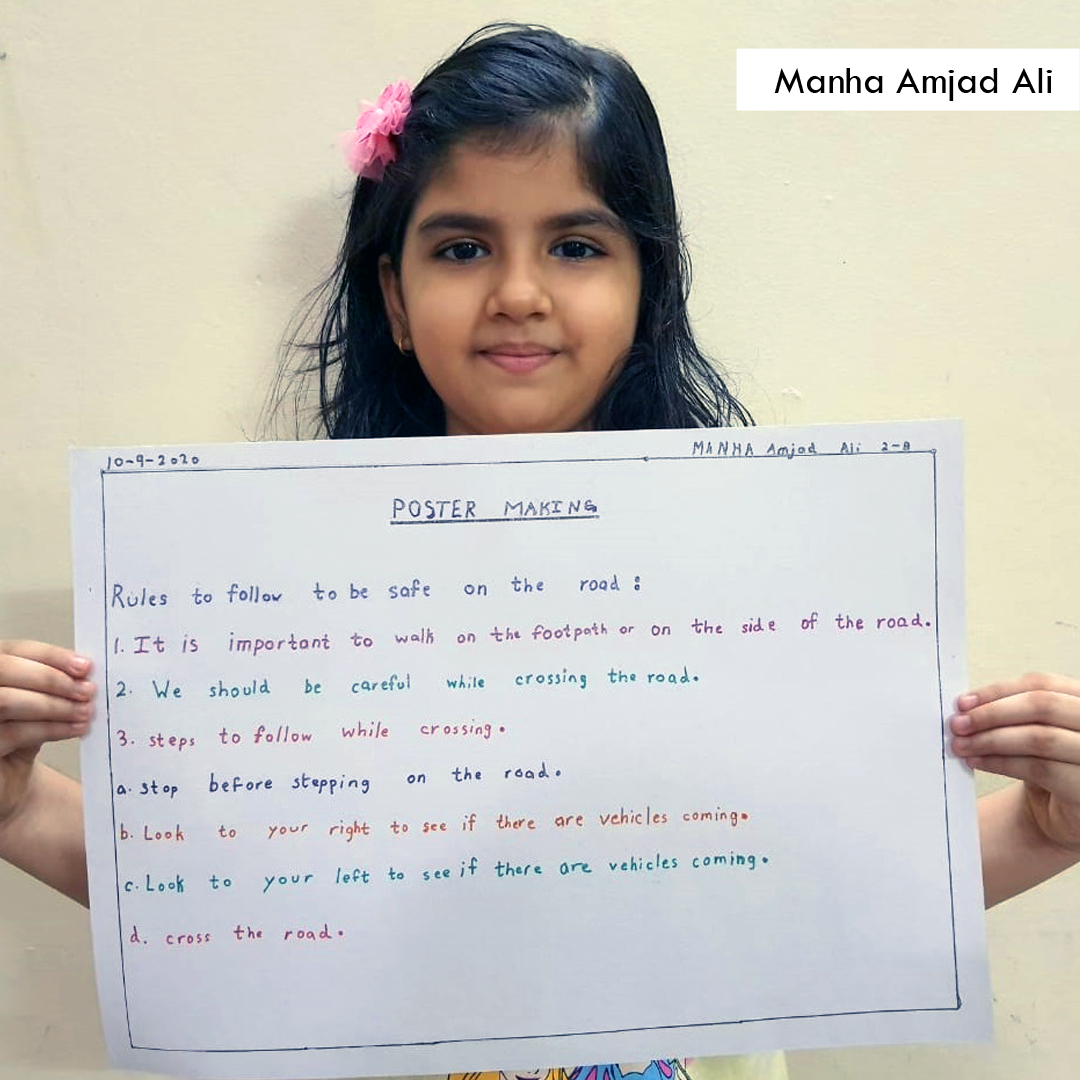 Manha Amjad Ali
10-9-2020
MANHA Amjad Ali 2-B
POSTER MAKING
Rules to follow to be safe on the road :
1. It is important to walk on the footpath or on the side of the road.
2. We should be careful while crossing the road.
3. steps to follow while crossing.
a. stop before stepping on the road.
b. Look to your right to see if there are vehicles coming.
c. Look to your left to see if there are vehicles coming.
d. cross the road.